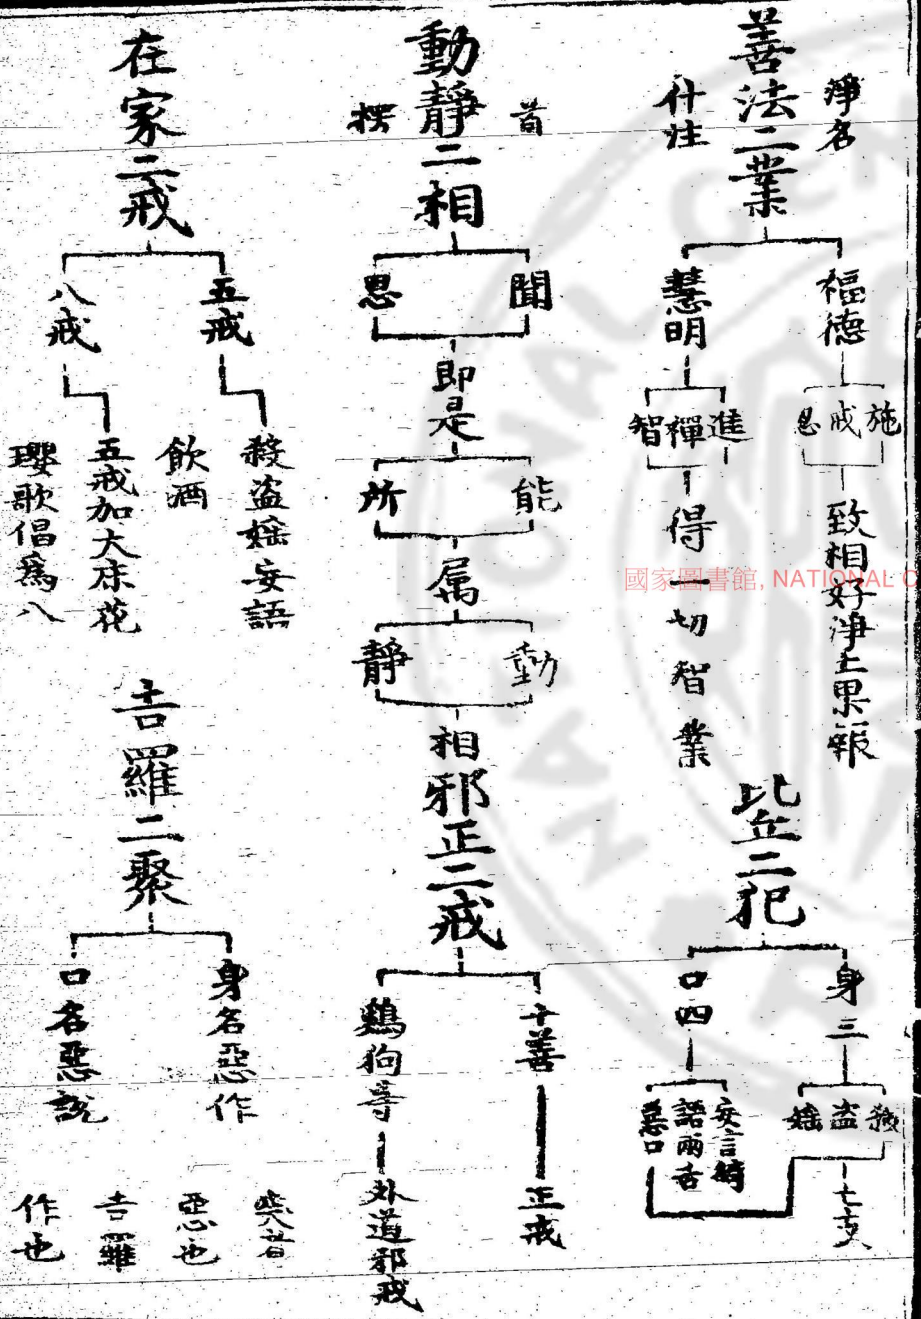 淨名
善法二業
什注
福德
施戒忍
致相好淨土果報
慧明
進禪智
得一切智業
比丘二犯
身三
殺盜婬
口四
妄言綺
語兩舌
惡口
七支
首
動靜二相
楞
聞
思
即是
能
所
属
動
靜
相
邪正二戒
十善
正戒
鷄狗等
外道邪戒
在家二戒
五戒
殺盗婬妄語
飲酒
八戒
五戒加大床花
瓔歌倡為八
吉羅二聚
身名惡作
口名惡說
突者
惡也
吉羅
作也
國家圖書館, NATIONAL C